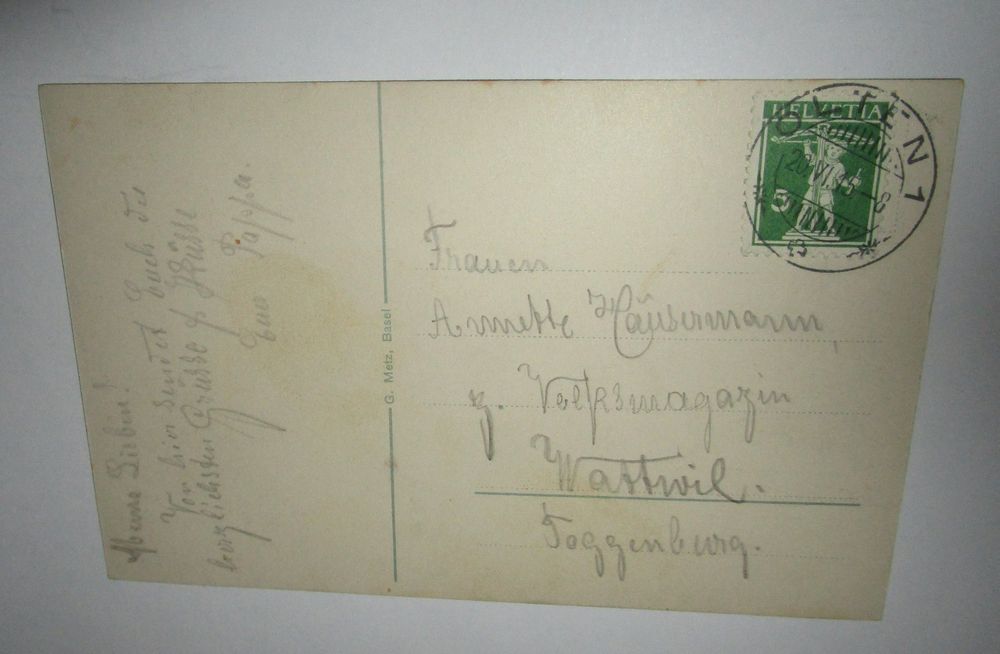 Meine Lieben!
Von hier sendet Euch die
herzlichsten Grüsse & Küsse
Euer Pappa.
G. Metz, Basel
HELVETIA
5
OLTEN 1
Frauen
Annette Häusermann,
z. Volksmagazin
Wattwil.
Toggenburg.